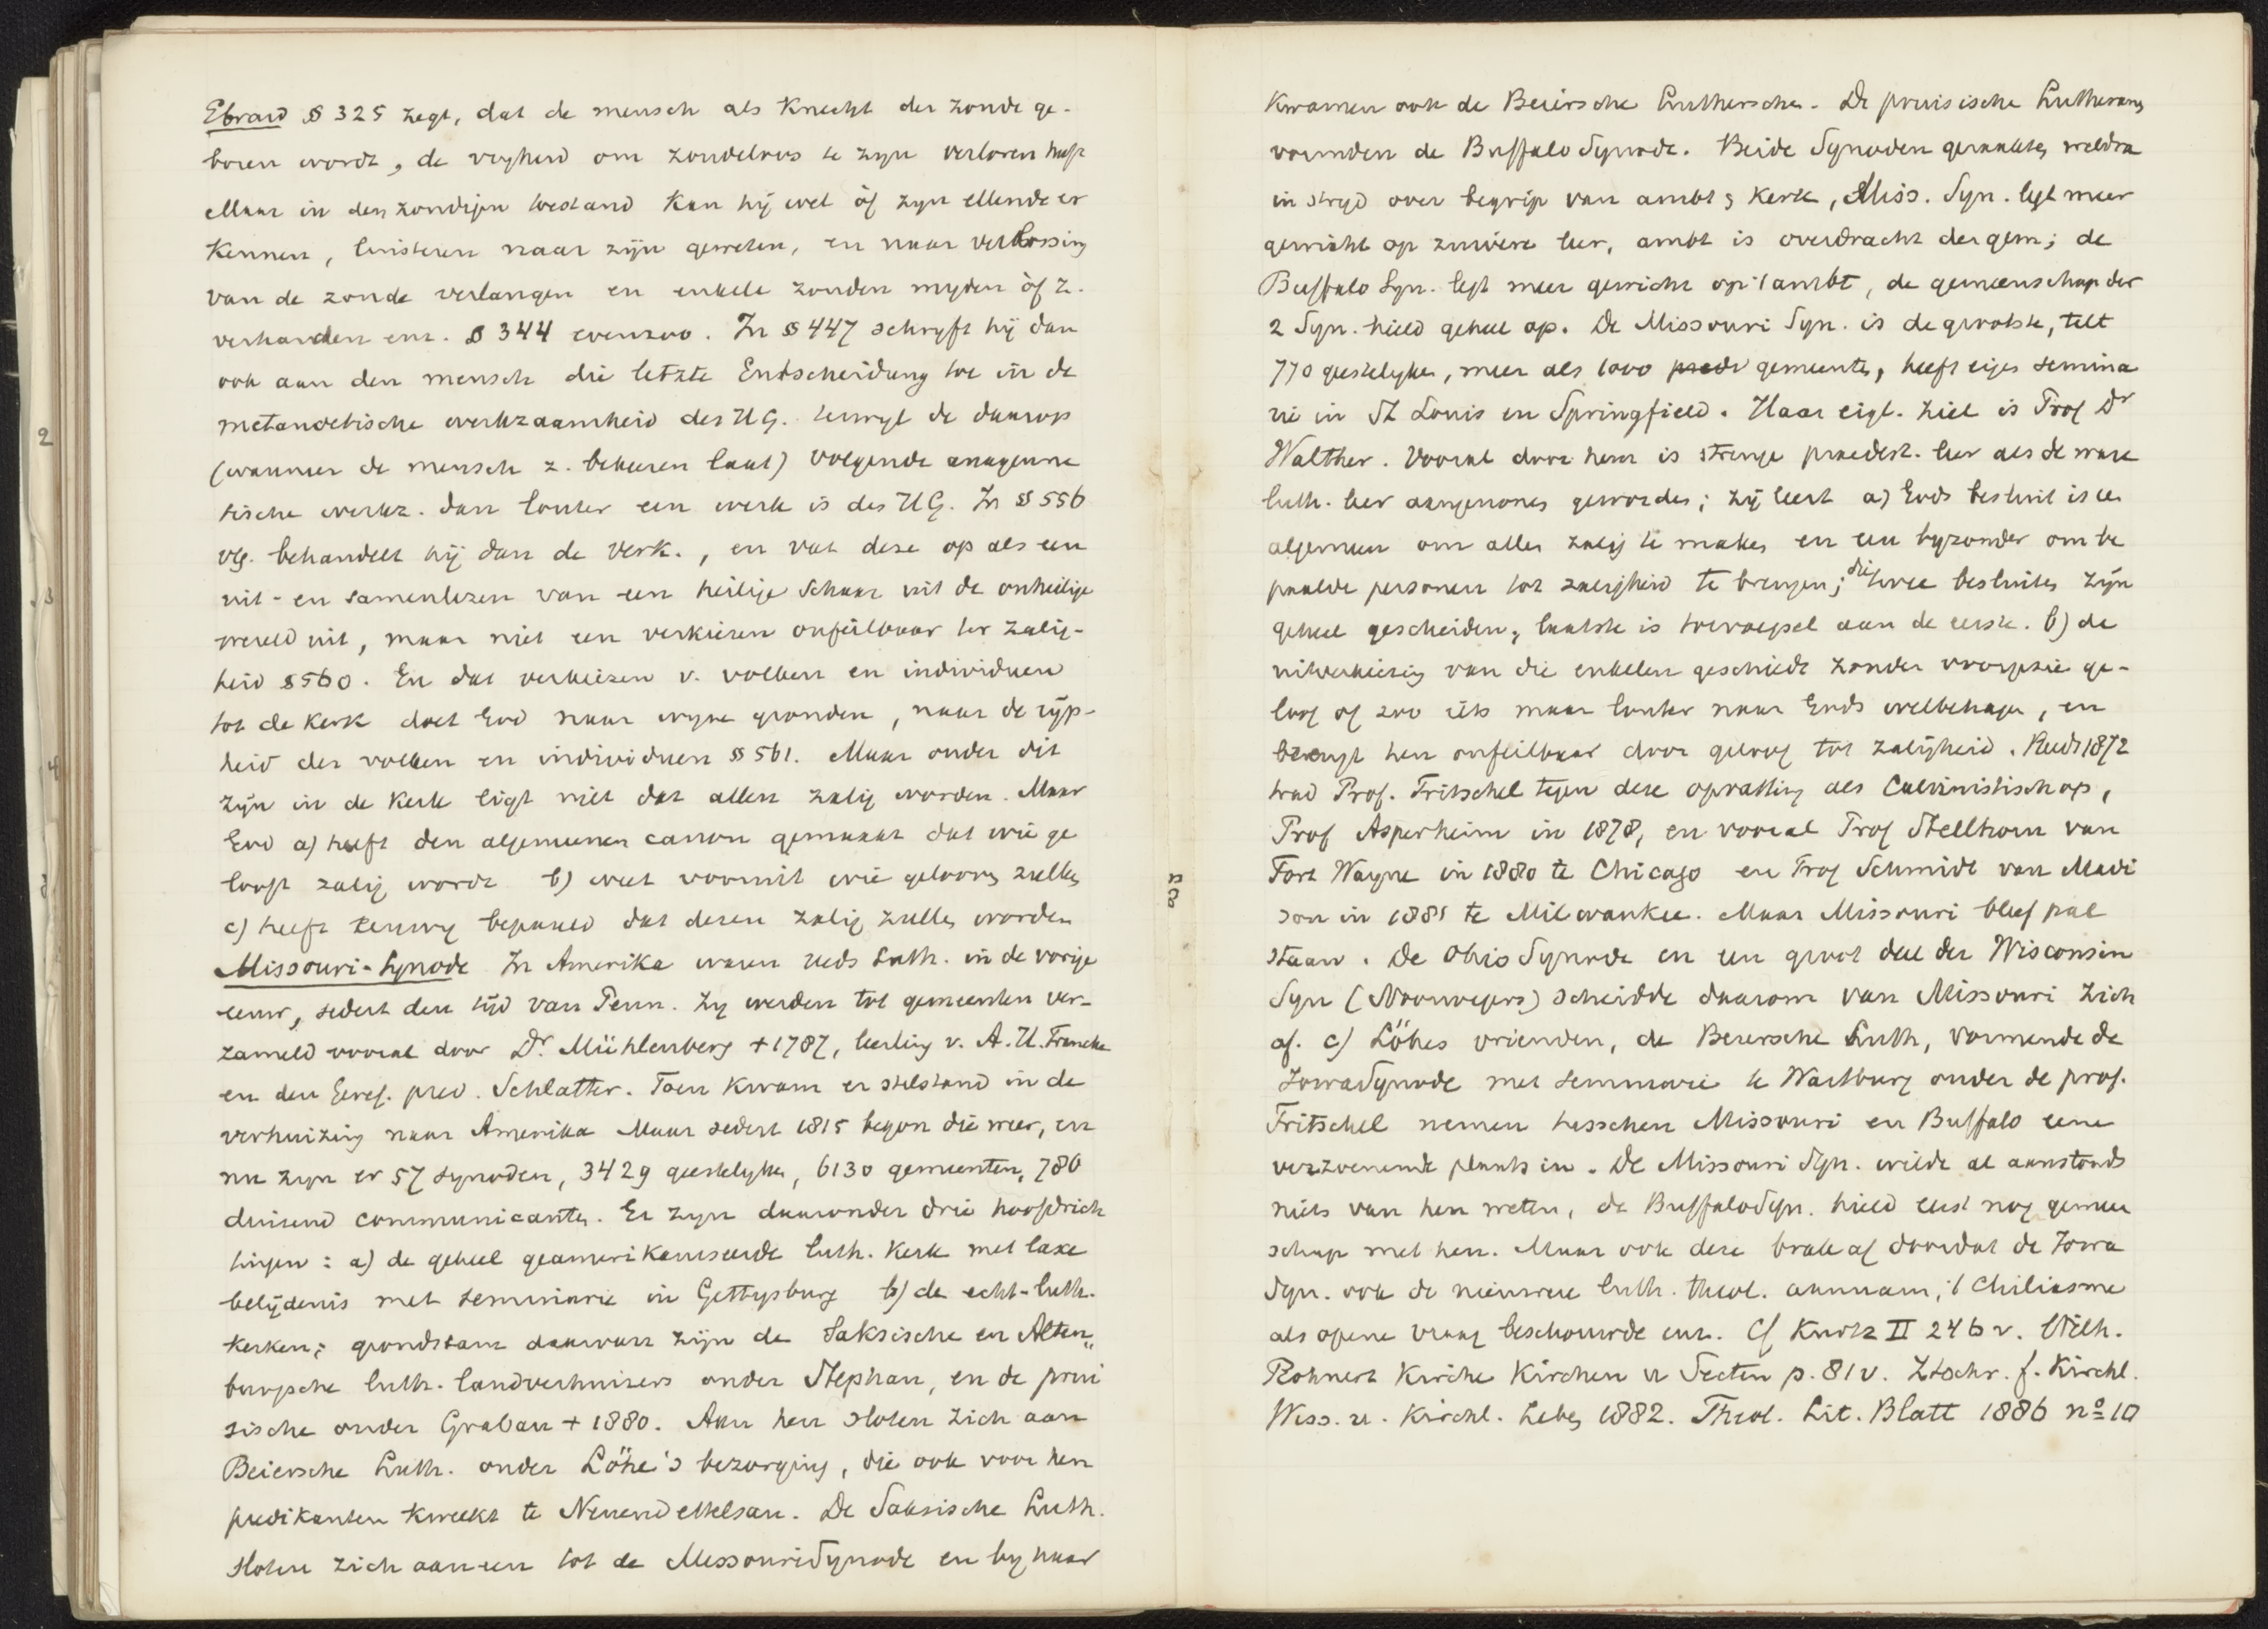 Ebrard § 325 zegt, dat de mensch als Knecht der zonde ge-
boren wordt, de vryheid om zondeloos te zyn verloren heeft
Maar in den zondigen toestand kan hij wel òf zyn ellende er
kennen, luisteren naar zijn geweten, en naar verlossing
van de zonde verlangen en enkele zonden myden òf z.
verharden enz. § 344 evenzoo. In § 447 schryft hij dan
ook aan den mensch die letzte Entscheidung toe in de
metanoetische werkzaamheid des H G. terwyl de daarop
(wanneer de mensch z. bekeeren laat) volgende anagenne
tische werkz. dan louter een werk is des H G. In § 556
vlg. behandelt hij dan de Verk., en vat deze op als een
uit- en samenlezen van een heilige Schaar uit de onheilige
wereld uit, maar niet een verkiezen onfeilbaar ter zalig-
heid § 560. En dat verkiezen v. volken en individuen
tot de Kerk doet God naar wyze gronden, naar de ryp-
heid der volken en individuen § 561. Maar onder dit
zijn in de Kerk ligt niet dat allen zalig worden. Maar
God a) heeft den algemeenen canon gemaakt dat wie ge
looft zalig wordt b) weet vooruit wie gelooven zullen
c) heeft eeuwig bepaald dat dezen zalig zullen worden
Missouri-Synode In Amerika waren reeds Luth. in de vorige
eeuw, sedert den tijd van Penn. Zy werden tot gemeenten ver-
zameld vooral door Dr. Mühlenberg + 1787, leerling v. A. H. Francke
en den Geref. pred. Schlatter. Toen kwam er stilstand in de
verhuizing naar Amerika Maar sedert 1815 begon die weer, en
nu zyn er 57 synoden, 3429 geestelyken, 6130 gemeenten, 786
duizend communicanten. Er zyn daaronder drie hoofdrich
tingen: a) de geheel geamerikaniseerde luth. Kerk met laxe
belijdenis met seminarie in Gettysburg b) de echt-luth.
Kerken; grondstam daarvan zijn de Saksische en Alten„
burgsche luth. landverhuizers onder Stephan, en de prui
sische onder Grabau + 1880. Aan hen sloten zich aan
Beiersche Luth. onder Löhe's bezorging, die ook voor hen
predikanten kweekt te Neuendettelsau. De Saksische Luth.
sloten zich aaneen tot de MissouriSynode en by haar
kwamen ook de Beiersche Luthersche. De pruisische Lutheranen
vormden de Buffalo Synode. Beide Synoden geraakten weldra
in stryd over begrip van ambt & Kerk, Miss. Syn. legt meer
gewicht op zuivere leer, ambt is overdracht der gem; de
Buffalo Syn. legt meer gewicht op 't ambt, de gemeenschap der
2 Syn. hield geheel op. De Missouri Syn. is de grootste, telt
770 geestelyken, meer als 1000 predi gemeenten, heeft eigen semina
rie in St Louis en Springfield. Haar eigl. ziel is Prof Dr
Walther. Vooral door hem is strenge praedest. leer als de ware
luth. leer aangenomen geworden; zij leert a) Gods besluit is een
algemeen om allen zalig te maken en een byzonder om be
paalde personen tot zaligheid te brengen; die twee besluiten zijn
geheel gescheiden; laatste is toevoegsel aan de eerste. b) de
uitverkiezing van die enkelen geschiedt zonder voorgezie ge-
loof of zoo iets maar louter naar Gods welbehagen, en
brengt hen onfeilbaar door geloof tot zaligheid. Reeds 1872
trad Prof. Fritschel tegen deze opvatting als Calvinistisch op,
Prof Asperheim in 1878, en vooral Prof Stellhorn van
Fort Wayne in 1880 te Chicago en Prof Schmidt van Madi
son in 1881 te Milwaukee. Maar Missouri bleef pal
staan. De Ohio Synode en een groot deel der Wisconsin
Syn (Noorwegers) scheidde daarom van Missouri zich
af. c) Löhes vrienden, de Beiersche Luth, vormende de
IowaSynode met seminarie te Wartburg onder de prof.
Fritschel nemen tusschen Missouri en Buffalo eene
verzoenende plaats in. De Missouri Syn. wilde al aanstonds
niets van hen weten, de BuffaloSyn. hield eerst nog gemeen
schap met hen. Maar ook deze brak af doordat de Iowa
Syn. ook de nieuwere luth. theol. aannam, 't Chiliasme
als opene vraag beschouwde enz. Cf Kurtz II 246 v. Wilh.
Rohnert Kirche Kirchen u Secten p. 81 v. Ztschr. f. Kirchl.
Wiss. u. Kirchl. Leben 1882. Theol. Lit. Blatt 1886 no 10